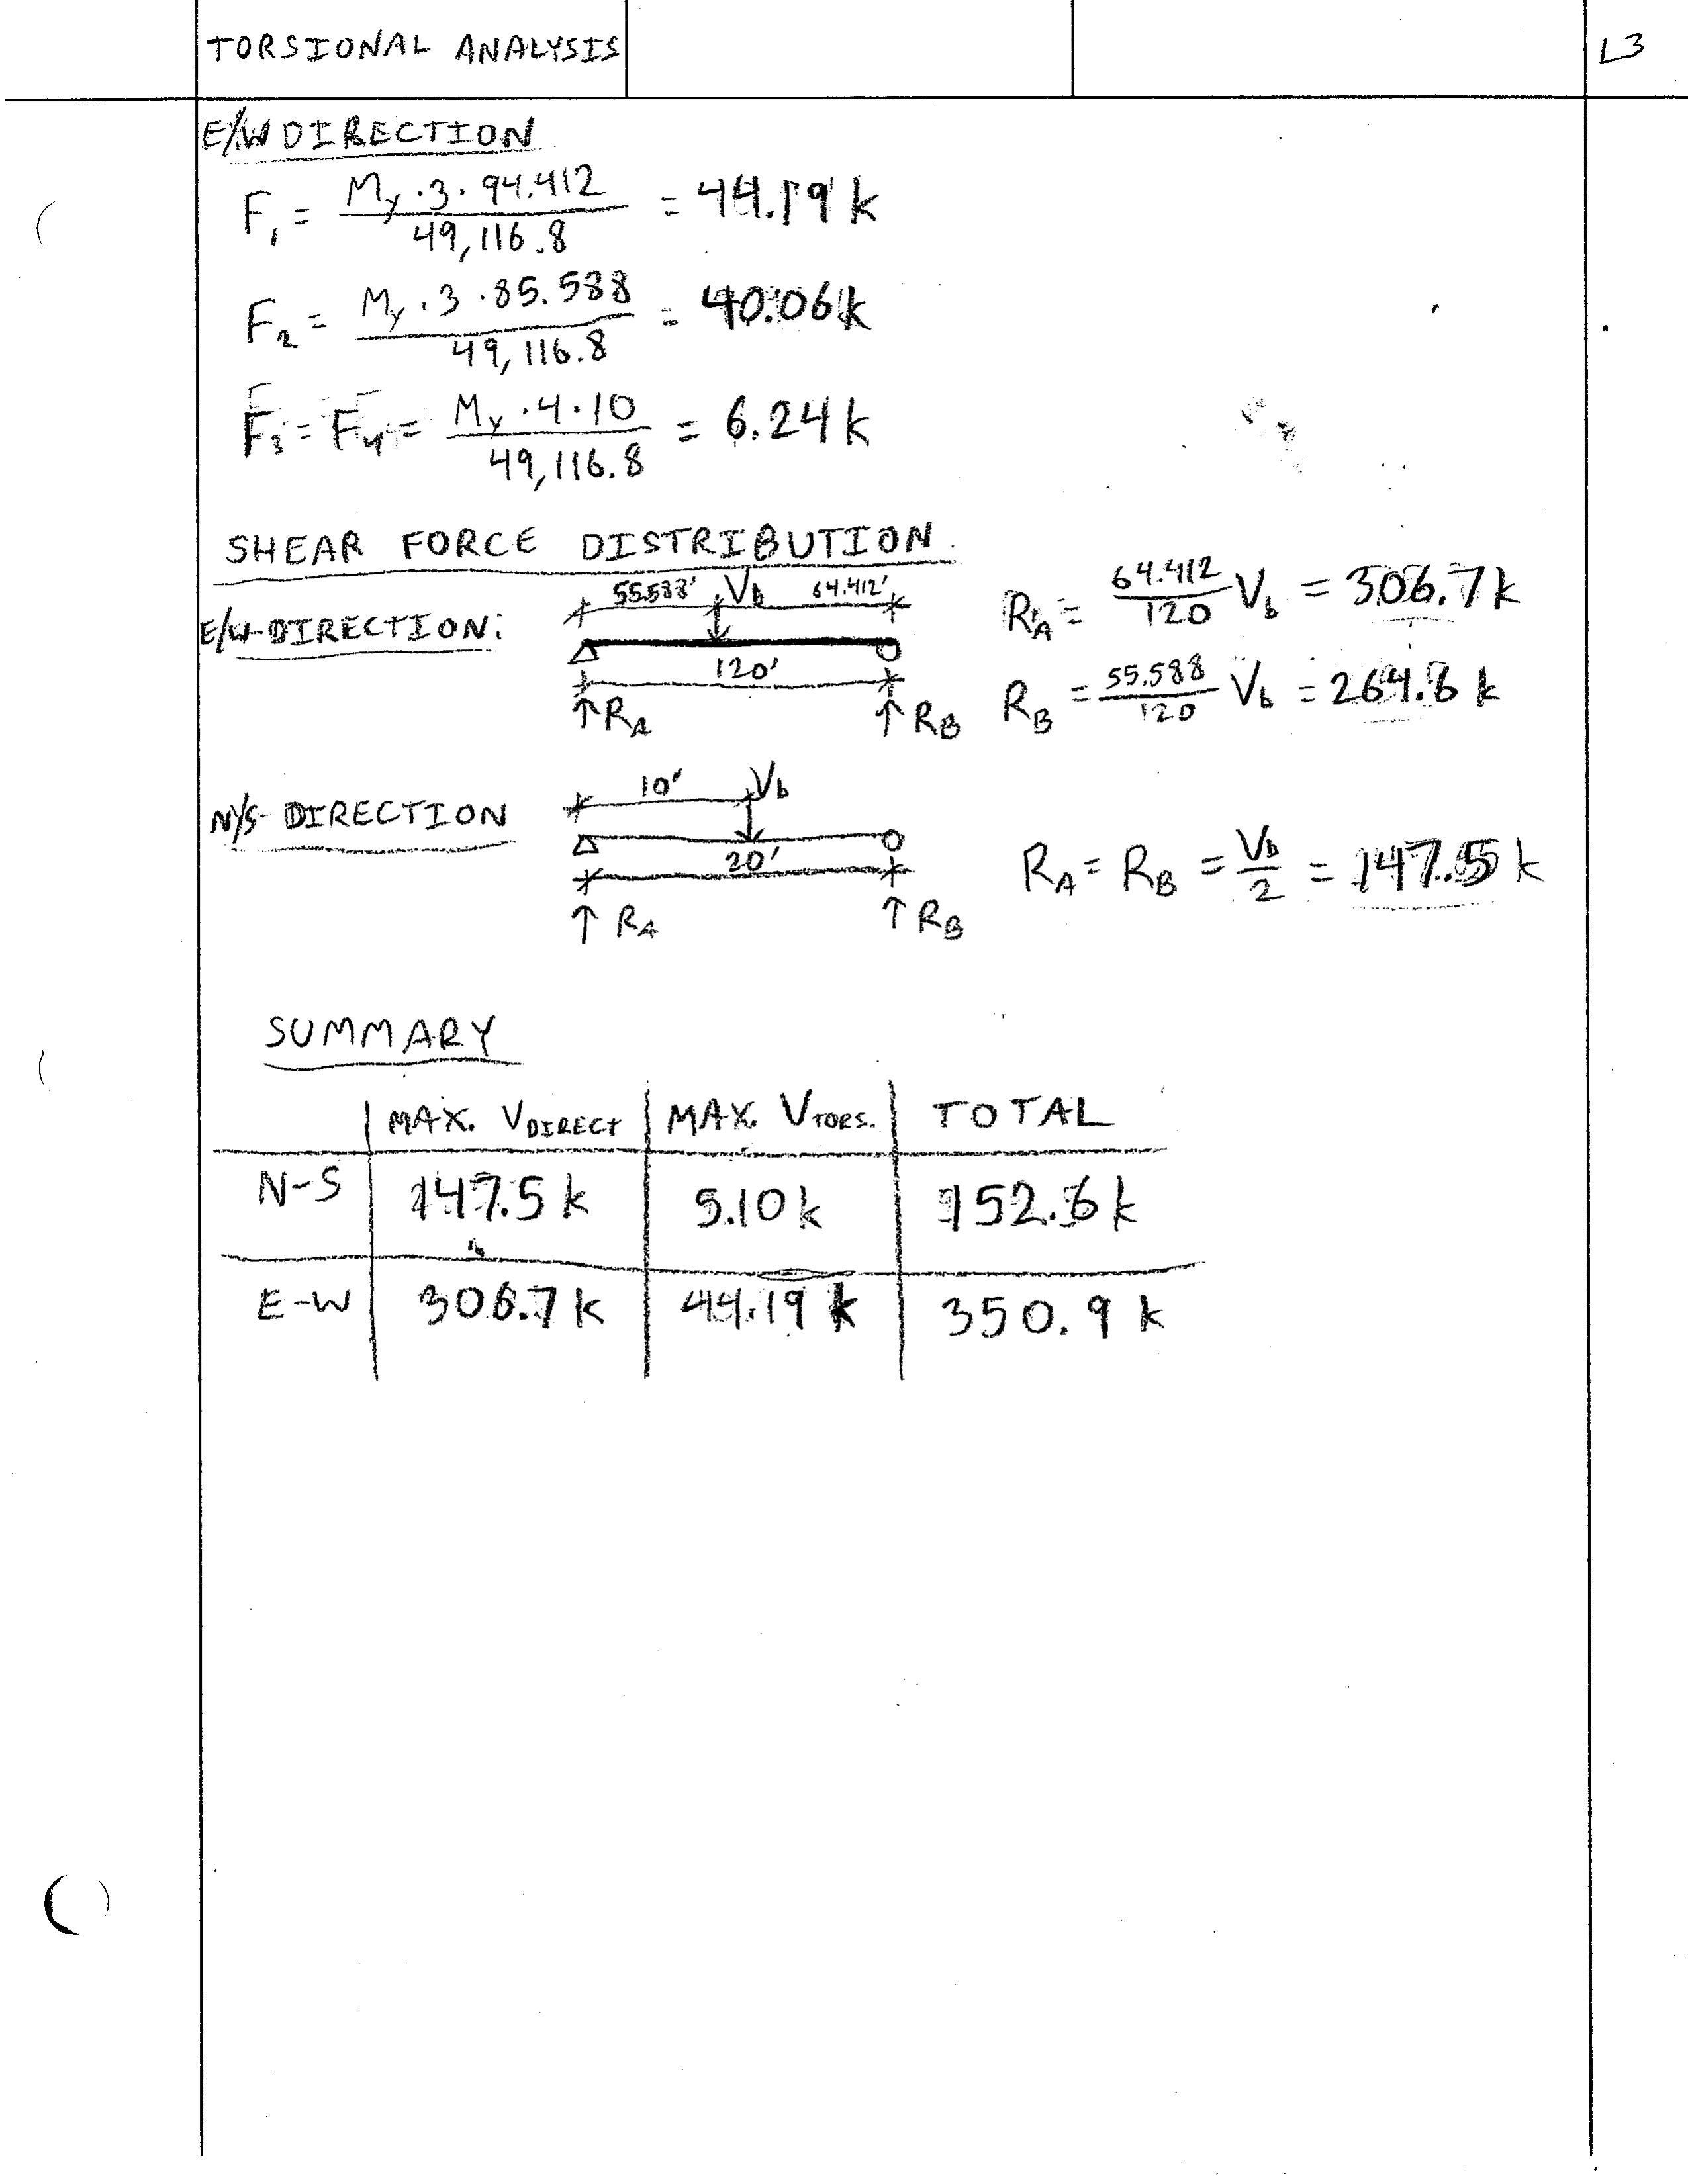 TORSIONAL ANALYSIS
L3
E/W DIRECTION
F₁ = My · 3 · 94.412 / 49,116.8 = 44.19 k
F₂ = My · 3 · 85.588 / 49,116.8 = 40.06 k
F₃ = F₄ = My · 4 · 10 / 49,116.8 = 6.24 k
SHEAR FORCE DISTRIBUTION
E/W-DIRECTION:
55.588' Vb 64.412'
120'
↑ RA ↑ RB
RA = 64.412 / 120 Vb = 306.7 k
RB = 55.588 / 120 Vb = 264.8 k
N/S- DIRECTION
10' Vb
20'
↑ RA ↑ RB
RA = RB = Vb / 2 = 147.5 k
SUMMARY
MAX. VDIRECT MAX. VTORS. TOTAL
N-S 147.5 k 5.10 k 152.6 k
E-W 306.7 k 44.19 k 350.9 k